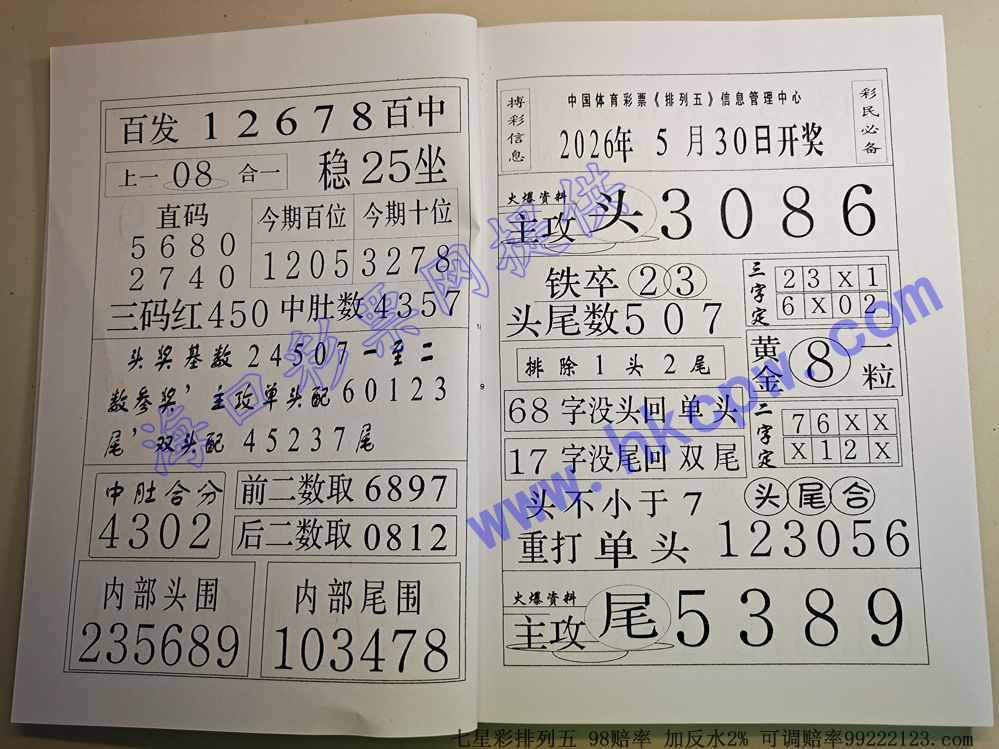 百发 12678 百中
上一 08 合一
稳 25 坐
直码
5680
2740
今期百位
1205
今期十位
3278
三码红 450
中肚数 4357
头奖基数 24507 一至二
数参奖’主攻单头配 60123
尾’双头配 45237 尾
中肚合分
4302
前二数取 6897
后二数取 0812
内部头围
235689
内部尾围
103478
搏彩信息
中国体育彩票《排列五》信息管理中心
2026年 5 月 30日开奖
彩民必备
火爆资料
主攻 头 3086
铁卒 23
头尾数 507
三字定
23X1
6X02
排除 1 头 2 尾
黄金 8 一粒
68 字没头回 单头
17 字没尾回 双尾
二字定
76XX
X12X
头不小于 7
头尾合
重打 单头 123056
火爆资料
主攻 尾 5389
海口彩票网提供
www.hkcpw.com
七星彩排列五 98赔率 加反水2% 可调赔率99222123.com